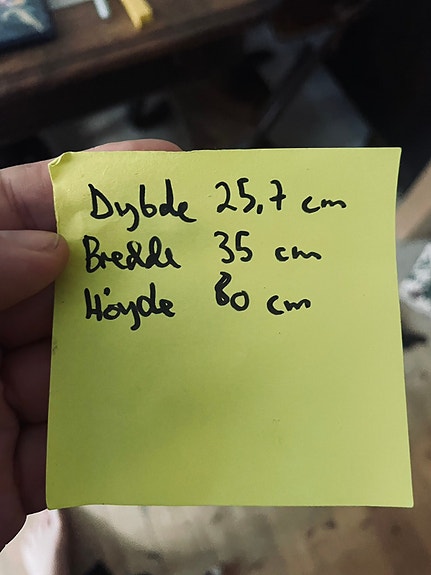 Dybde 25,7 cm
Bredde 35 cm
Höyde 80 cm